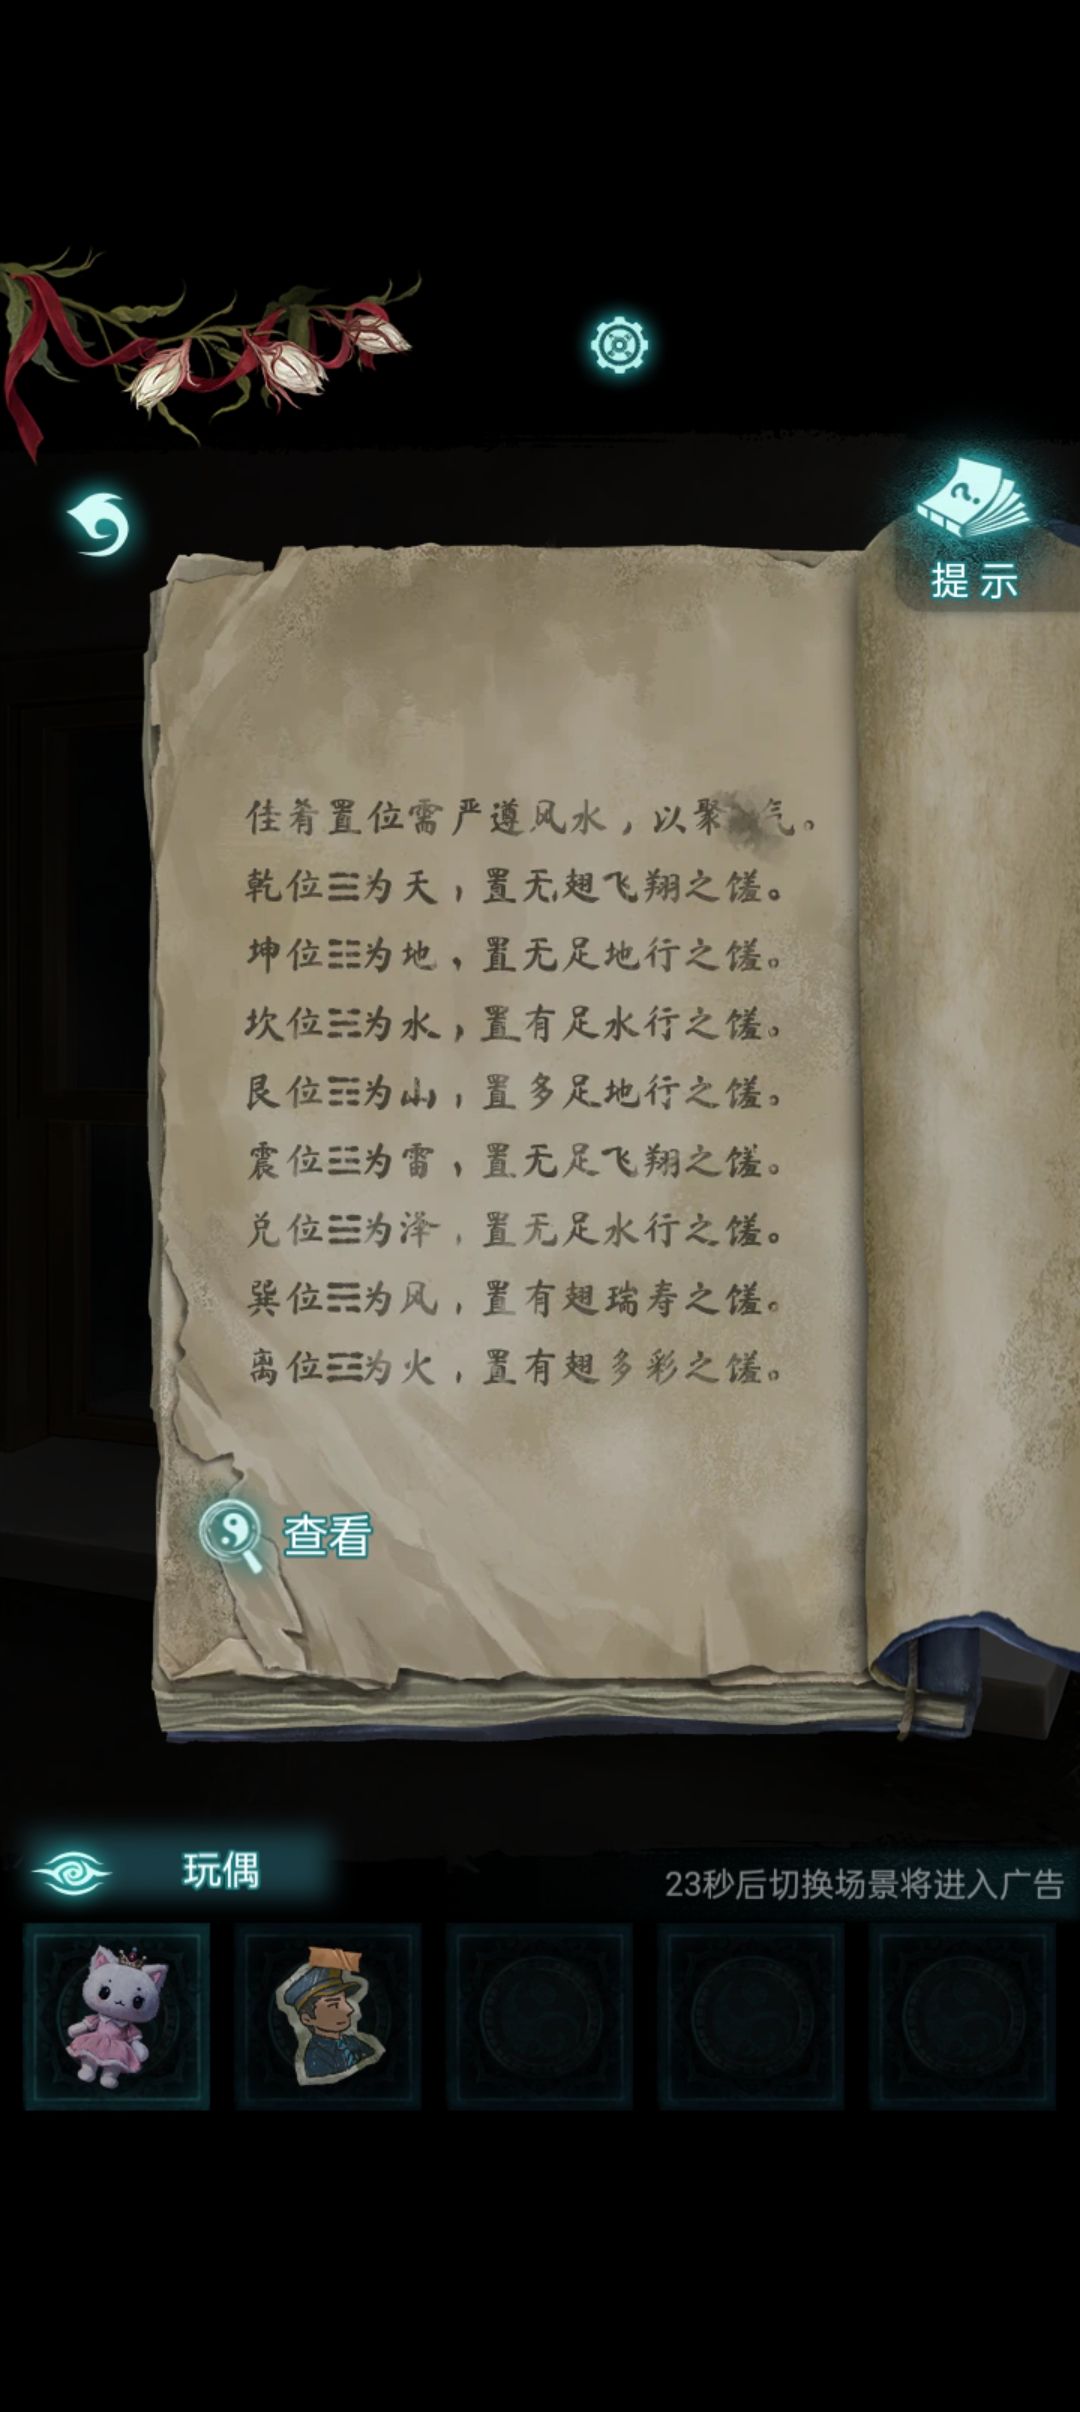 提示
佳肴置位需严遵风水，以聚气。
乾位☰为天，置无翅飞翔之馐。
坤位☷为地，置无足地行之馐。
坎位☵为水，置有足水行之馐。
艮位☶为山，置多足地行之馐。
震位☳为雷，置无足飞翔之馐。
兑位☱为泽，置无足水行之馐。
巽位☴为风，置有翅瑞寿之馐。
离位☲为火，置有翅多彩之馐。
查看
玩偶
23秒后切换场景将进入广告